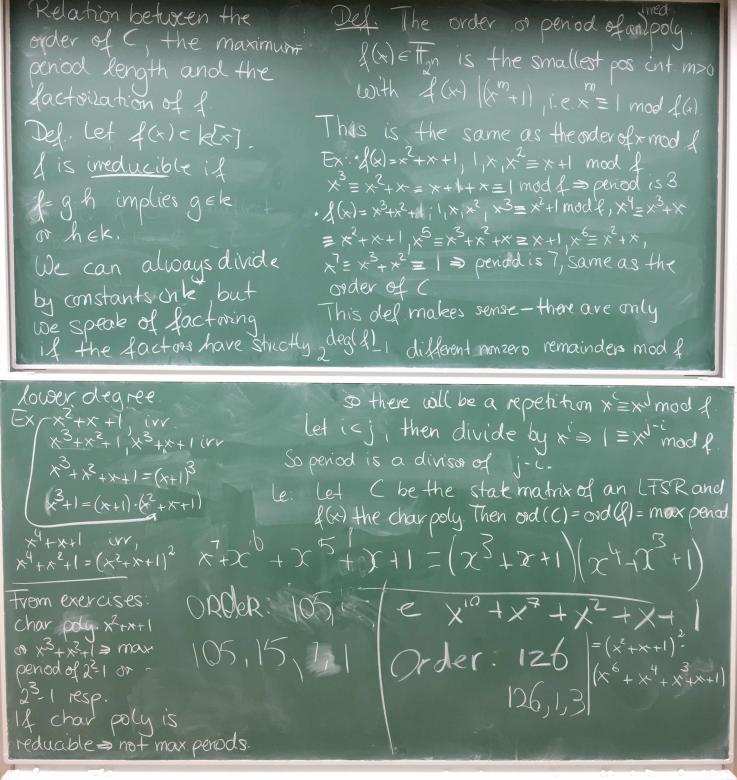 Relation between the
order of C, the maximum
period length and the
factorization of f.
Def. Let f(x) ∈ k[x].
f is irreducible if
f = g h implies g∈k
or h∈k.
We can always divide
by constants in k, but
we speak of factoring
if the factors have strictly
Def: The order or period of an irred. poly
f(x) ∈ F_2^n is the smallest pos int. m>0
with f(x) | (x^m+1), i.e x^m ≡ 1 mod f(x).
This is the same as the order of x mod f
Ex: • f(x)=x^2+x+1, 1, x, x^2 ≡ x+1 mod f
x^3 ≡ x^2+x = x+1+x ≡ 1 mod f ⇒ period is 3
• f(x)=x^3+x^2+1; 1, x, x^2, x^3 ≡ x^2+1 mod f, x^4 ≡ x^3+x
≡ x^2+x+1, x^5 ≡ x^3+x^2+x ≡ x+1, x^6 ≡ x^2+x,
x^7 ≡ x^3+x^2 ≡ 1 ⇒ period is 7, same as the
order of C
This def makes sense – there are only
2^deg(f)-1 different nonzero remainders mod f.
lower degree.
Ex x^2+x+1, irr.
x^3+x^2+1, x^3+x+1 irr
x^3+x^2+x+1=(x+1)^3
x^3+1=(x+1)·(x^2+x+1)
x^4+x+1 irr,
x^4+x^2+1=(x^2+x+1)^2
From exercises:
char poly. x^2+x+1
or x^3+x^2+1 ⇒ max
period of 2^2-1 or
2^3-1 resp.
If char poly is
reducable ⇒ not max periods.
so there will be a repetition x^i ≡ x^j mod f.
Let i<j, then divide by x^i ⇒ 1 ≡ x^j-i mod f.
So period is a divisor of j-i.
Le: Let C be the state matrix of an LFSR and
f(x) the char poly. Then ord(C) = ord(f) = max period
x^7+x^6+x^5+x+1=(x^3+x+1)(x^4+x^3+1)
ORDER: 105,
105, 15, 7, 1
e x^10+x^7+x^2+x+1
=(x^2+x+1)^2·
(x^6+x^4+x^3+x+1)
Order: 126
126, 1, 3